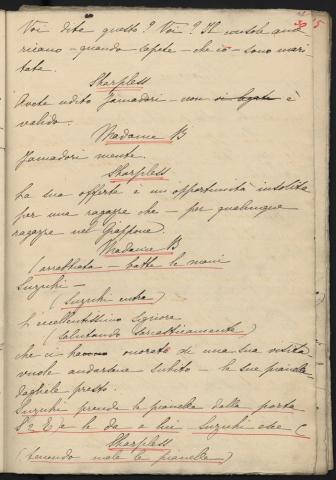 5
Voi dite questo? Voi? Il console ame
ricano – quando sapete – che io – sono mari
tata.
Sharpless
Avete udito Yamadori – non si legate è
valido.
Madame B
Yamadori mente.
Sharpless
La sua offerta è un opportunità insolita
per una ragazza che – per qualunque
ragazza nel Giappone.
Madame B
(arrabbiata – batte le mani
Suzuki –
(Suzuki entra)
L'eccellentissimo signore
(salutando sarcasticamente)
che ci onorate di una sua visita
vuole andarsene subito – le sue pianelle
dagliele presto.
Suzuki prende le pianelle dalla porta
e le da a lui – Suzuki esce (
Sharpless
(tenendo male le pianelle)